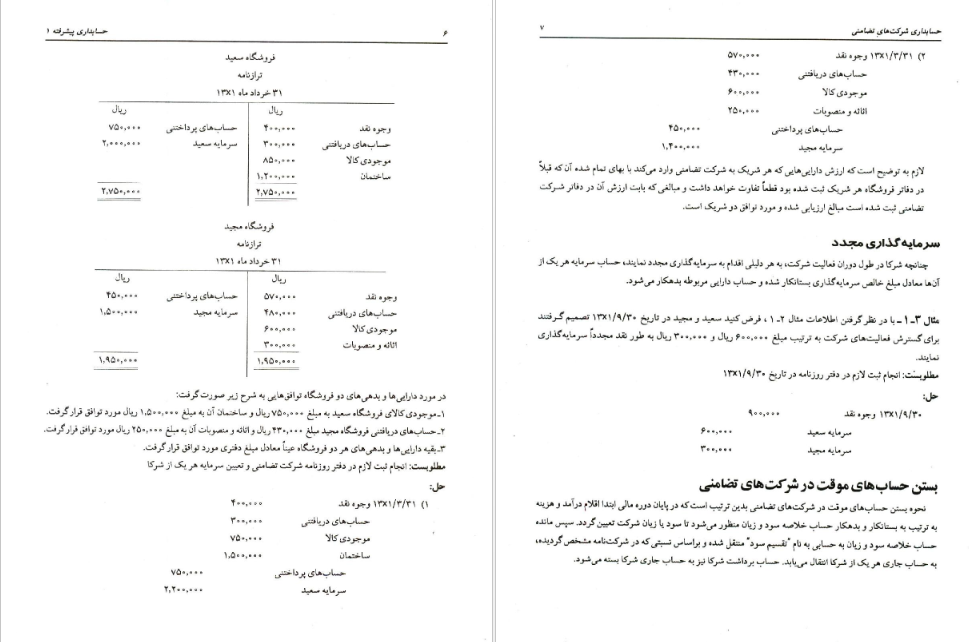 ۶
حسابداری پیشرفته ۱
فروشگاه سعید
ترازنامه
۳۱ خرداد ماه ۱۳X۱
ریال ریال
وجوه نقد ۴۰۰,۰۰۰ حساب‌های پرداختنی ۷۵۰,۰۰۰
حساب‌های دریافتنی ۳۰۰,۰۰۰ سرمایه سعید ۲,۰۰۰,۰۰۰
موجودی کالا ۸۵۰,۰۰۰
ساختمان ۱,۲۰۰,۰۰۰
۲,۷۵۰,۰۰۰ ۲,۷۵۰,۰۰۰
فروشگاه مجید
ترازنامه
۳۱ خرداد ماه ۱۳X۱
ریال ریال
وجوه نقد ۵۷۰,۰۰۰ حساب‌های پرداختنی ۴۵۰,۰۰۰
حساب‌های دریافتنی ۴۸۰,۰۰۰ سرمایه مجید ۱,۵۰۰,۰۰۰
موجودی کالا ۶۰۰,۰۰۰
اثاثه و منصوبات ۳۰۰,۰۰۰
۱,۹۵۰,۰۰۰ ۱,۹۵۰,۰۰۰
در مورد دارایی‌ها و بدهی‌های دو فروشگاه توافق‌هایی به شرح زیر صورت گرفت:
۱ـ موجودی کالای فروشگاه سعید به مبلغ ۷۵۰,۰۰۰ ریال و ساختمان آن به مبلغ ۱,۵۰۰,۰۰۰ ریال مورد توافق قرار گرفت.
۲ـ حساب‌های دریافتنی فروشگاه مجید مبلغ ۴۳۰,۰۰۰ ریال و اثاثه و منصوبات آن به مبلغ ۲۵۰,۰۰۰ ریال مورد توافق قرار گرفت.
۳ـ بقیه دارایی‌ها و بدهی‌های هر دو فروشگاه عیناً معادل مبلغ دفتری مورد توافق قرار گرفت.
مطلوبست: انجام ثبت لازم در دفتر روزنامه شرکت تضامنی و تعیین سرمایه هر یک از شرکا
حل:
۱) ۱۳X۱/۳/۳۱ وجوه نقد ۴۰۰,۰۰۰
حساب‌های دریافتنی ۳۰۰,۰۰۰
موجودی کالا ۷۵۰,۰۰۰
ساختمان ۱,۵۰۰,۰۰۰
حساب‌های پرداختنی ۷۵۰,۰۰۰
سرمایه سعید ۲,۲۰۰,۰۰۰
حسابداری شرکت‌های تضامنی
۷
۲) ۱۳X۱/۳/۳۱ وجوه نقد ۵۷۰,۰۰۰
حساب‌های دریافتنی ۴۳۰,۰۰۰
موجودی کالا ۶۰۰,۰۰۰
اثاثه و منصوبات ۲۵۰,۰۰۰
حساب‌های پرداختنی ۴۵۰,۰۰۰
سرمایه مجید ۱,۴۰۰,۰۰۰
لازم به توضیح است که ارزش دارایی‌هایی که هر شریک به شرکت تضامنی وارد می‌کند با بهای تمام شده آن که قبلاً
در دفاتر فروشگاه هر شریک ثبت شده بود قطعاً تفاوت خواهد داشت و مبالغی که بابت ارزش آن در دفاتر شرکت
تضامنی ثبت شده است مبالغ ارزیابی شده و مورد توافق دو شریک است.
سرمایه‌گذاری مجدد
چنانچه شرکا در طول دوران فعالیت شرکت، به هر دلیلی اقدام به سرمایه‌گذاری مجدد نمایند، حساب سرمایه هر یک از
آن‌ها معادل مبلغ خالص سرمایه‌گذاری بستانکار شده و حساب دارایی مربوطه بدهکار می‌شود.
مثال ۳ـ۱ـ با در نظر گرفتن اطلاعات مثال ۲ـ۱، فرض کنید سعید و مجید در تاریخ ۱۳X۱/۹/۳۰ تصمیم گرفتند
برای گسترش فعالیت‌های شرکت به ترتیب مبلغ ۶۰۰,۰۰۰ ریال و ۳۰۰,۰۰۰ ریال به طور نقد مجدداً سرمایه‌گذاری
نمایند.
مطلوبست: انجام ثبت لازم در دفتر روزنامه در تاریخ ۱۳X۱/۹/۳۰
حل:
۱۳X۱/۹/۳۰ وجوه نقد ۹۰۰,۰۰۰
سرمایه سعید ۶۰۰,۰۰۰
سرمایه مجید ۳۰۰,۰۰۰
بستن حساب‌های موقت در شرکت‌های تضامنی
نحوه بستن حساب‌های موقت در شرکت‌های تضامنی بدین ترتیب است که در پایان دوره مالی ابتدا اقلام درآمد و هزینه
به ترتیب به بستانکار و بدهکار حساب خلاصه سود و زیان منظور می‌شود تا سود یا زیان شرکت تعیین گردد. سپس مانده
حساب خلاصه سود و زیان به حسابی به نام "تقسیم سود" منتقل شده و براساس نسبتی که در شرکت‌نامه مشخص گردیده،
به حساب جاری هر یک از شرکا انتقال می‌یابد. حساب برداشت شرکا نیز به حساب جاری شرکا بسته می‌شود.